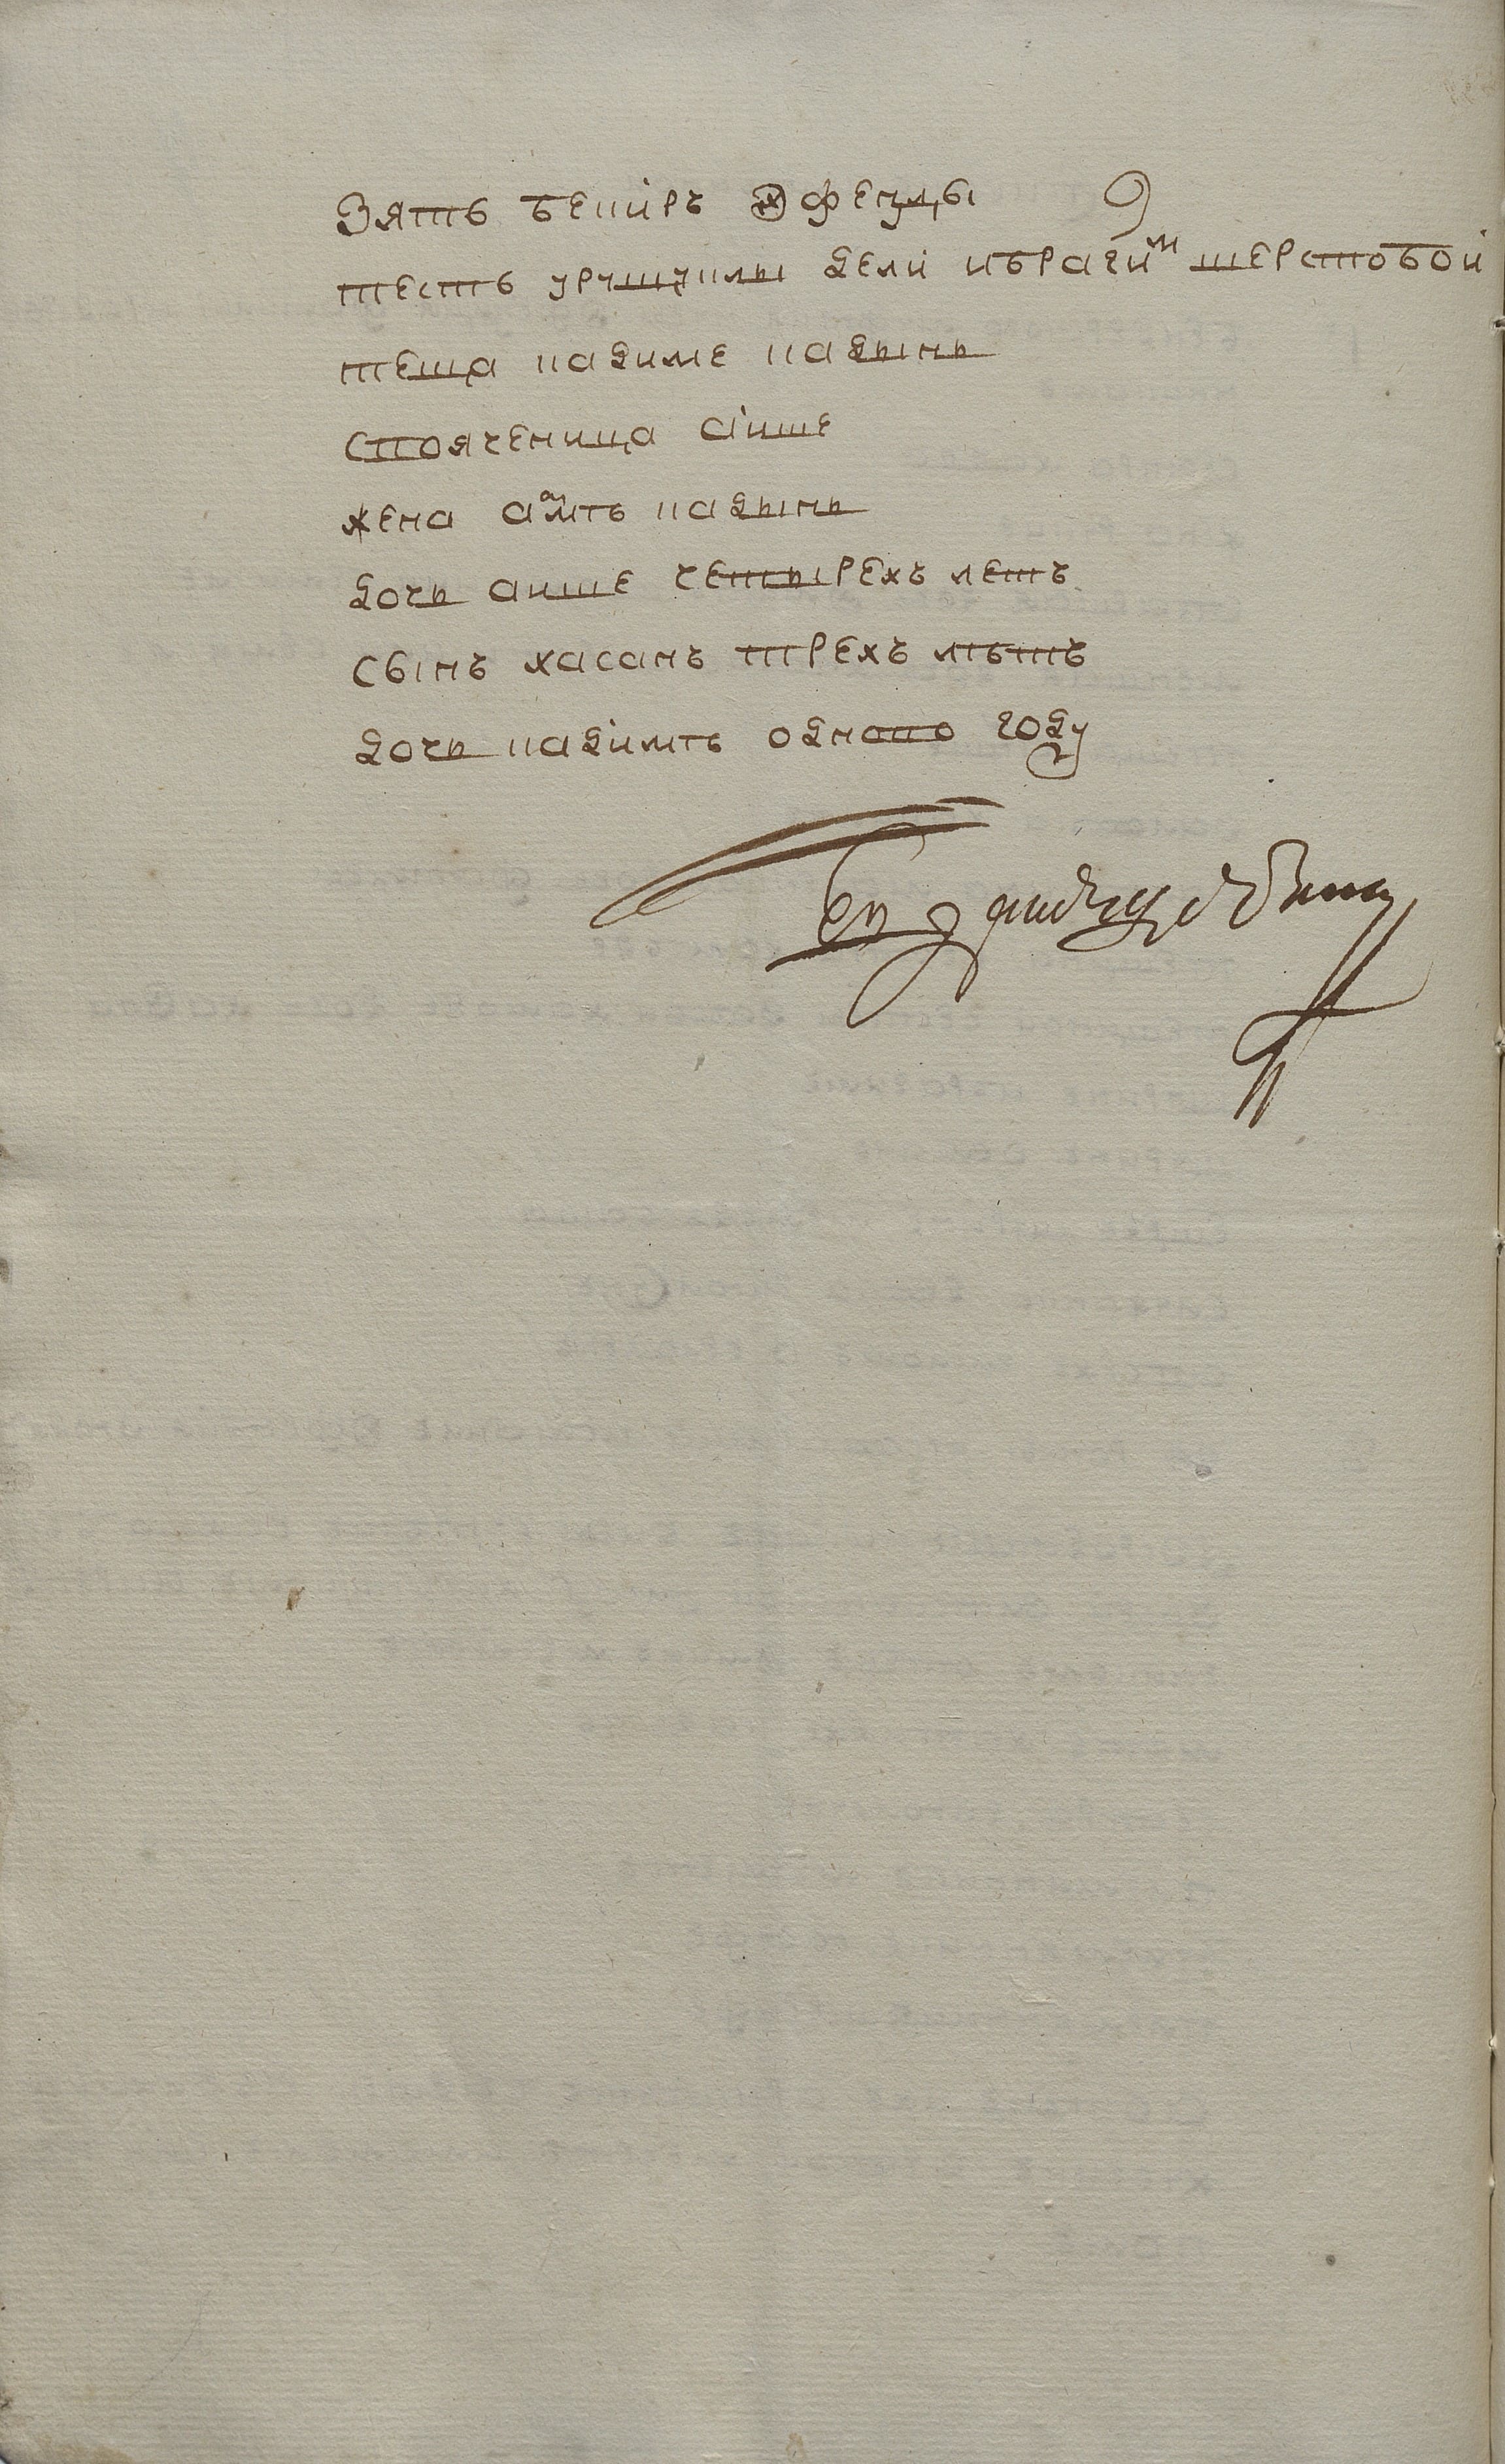 зять бекиръ эфенды
тесть урущуклы дели ибрагим шерстобой
теща кадиме кадынь
свояченица аише
жена кадынь
дочь аише четырехъ летъ
сынъ хасанъ трехъ лѣтъ
дочь кадимѣ одново году